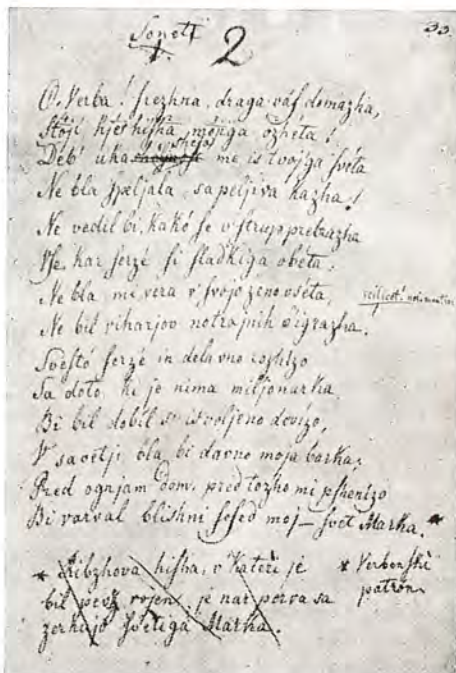 Soneti 33
1. 2
O, Verba! ſrezhna, draga váſ domazha,
Stójí kjér hiſha mojiga ozhéta!
Deb' uka sheja me is tvojga ſvéta
Ne bla speljála, sapeljiva kazha!
Ne vedil bi, kakó ſe v' ſtrup prebrazha
Vſe, kar ſerzé ſi ſladkiga obéta;
Ne bla mi vera v' ſvojo zeno vséta,
Ne bil viharjov notrajnih b' igrazha.
Sveſtó ſerzé in delavno rozhízo
Sa doto, ki je nima miljonarka
Bi bil dobil s' isvoljeno devízo,
V' savetji bla bi davno moja barka;
Pred ognjam dom, pred tozho mi pſhenízo
Bi varval blishni ſoſed moj – ſvet Marka.*
* Ribzhova hiſha, v kateri je
bil pevz rojen, je nar perva sa
zerkujo ſvetiga Marka.
* Verbenſki
patron.